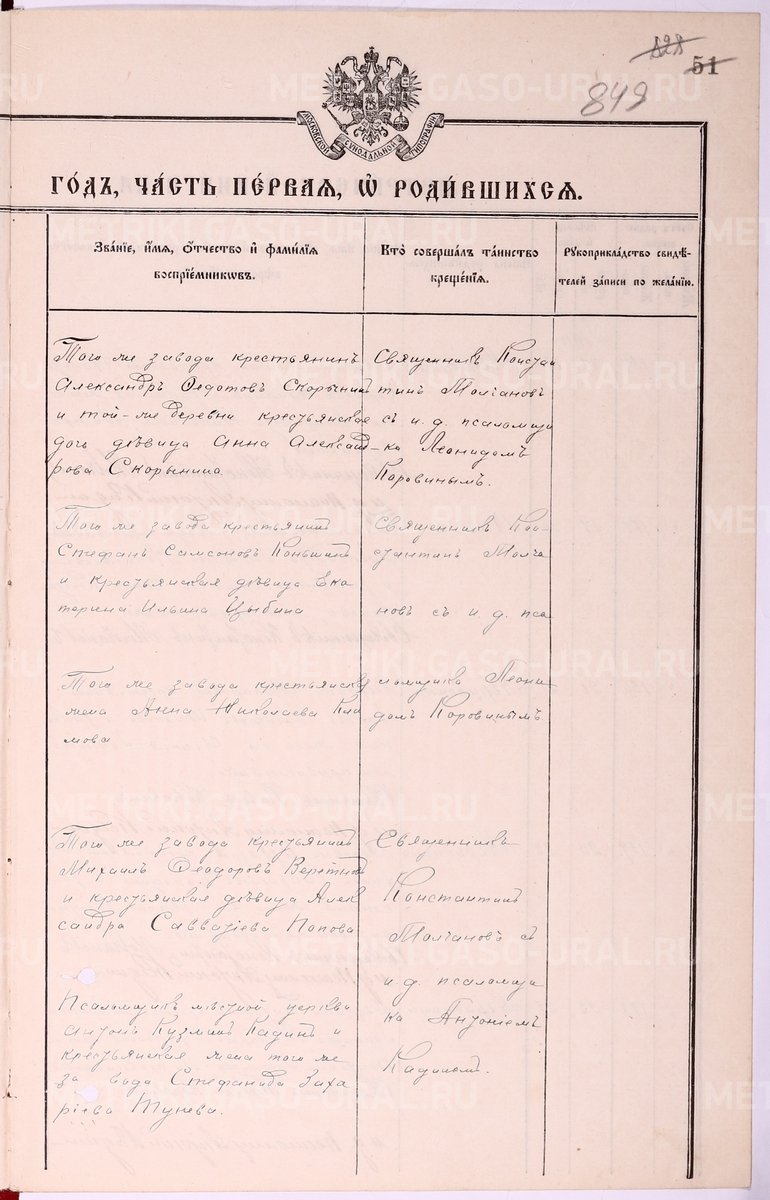 828
51
849
МОСКОВСКОЙ СѴНОДАЛЬНОЙ ТИПОГРАФІИ
ГО́ДЪ, ЧА́СТЬ ПЕ́РВАЯ, Ѡ҆ РОДИ́ВШИХСЯ.
Зва́нїе, и҆́мѧ, ѻ҆́тчество и҆ фами́лїѧ
воспрїе́мникѡвъ.
Кто̀ соверша́лъ та́инство
креще́нїѧ.
Рꙋкоприкла́дство свидѣ́-
телей за́писи по жела́нїю.
Того же завода крестьянинъ
Александръ Ѳедотовъ Скорынинъ
и той-же деревни крестьянская
дочь дѣвица Анна Александ
рова Скорынина
Священникъ Констан
тинъ Молчановъ
съ и. д. псаломщи
-ка Леонидомъ
Коровинымъ.
Того же завода крестьянинъ
Стефанъ Самсоновъ Коньшинъ
и крестьянская дѣвица Ека
терина Ильина Цыбина
Священникъ Кон-
стантинъ Молча
новъ съ и. д. пса
Того же завода крестьянская
жена Анна Николаева Кли
мова
ломщика Леони
домъ Коровинымъ
Того же завода крестьянинъ
Михаилъ Ѳеодоровъ
и крестьянская дѣвица Алек
сандра Савватіева Попова
Священникъ
Константинъ
Молчановъ съ
и д. псаломщи
ка Антоніемъ
Кадинемъ.
Псаломщикъ мѣстной церкви
Антонъ Кузминъ Кадинъ и
крестьянская жена того же
за вода Стефанида Заха
ріева Тунева.
METRIKI.GASO-URAL.RU